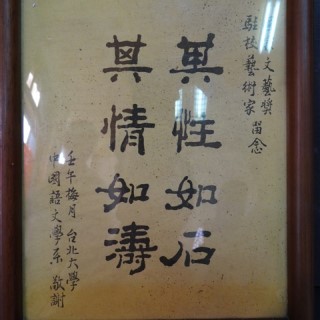 文藝獎
駐校藝術家 留念
其性如石
其情如濤
壬午梅月 台北大學
中國語文學系 敬謝